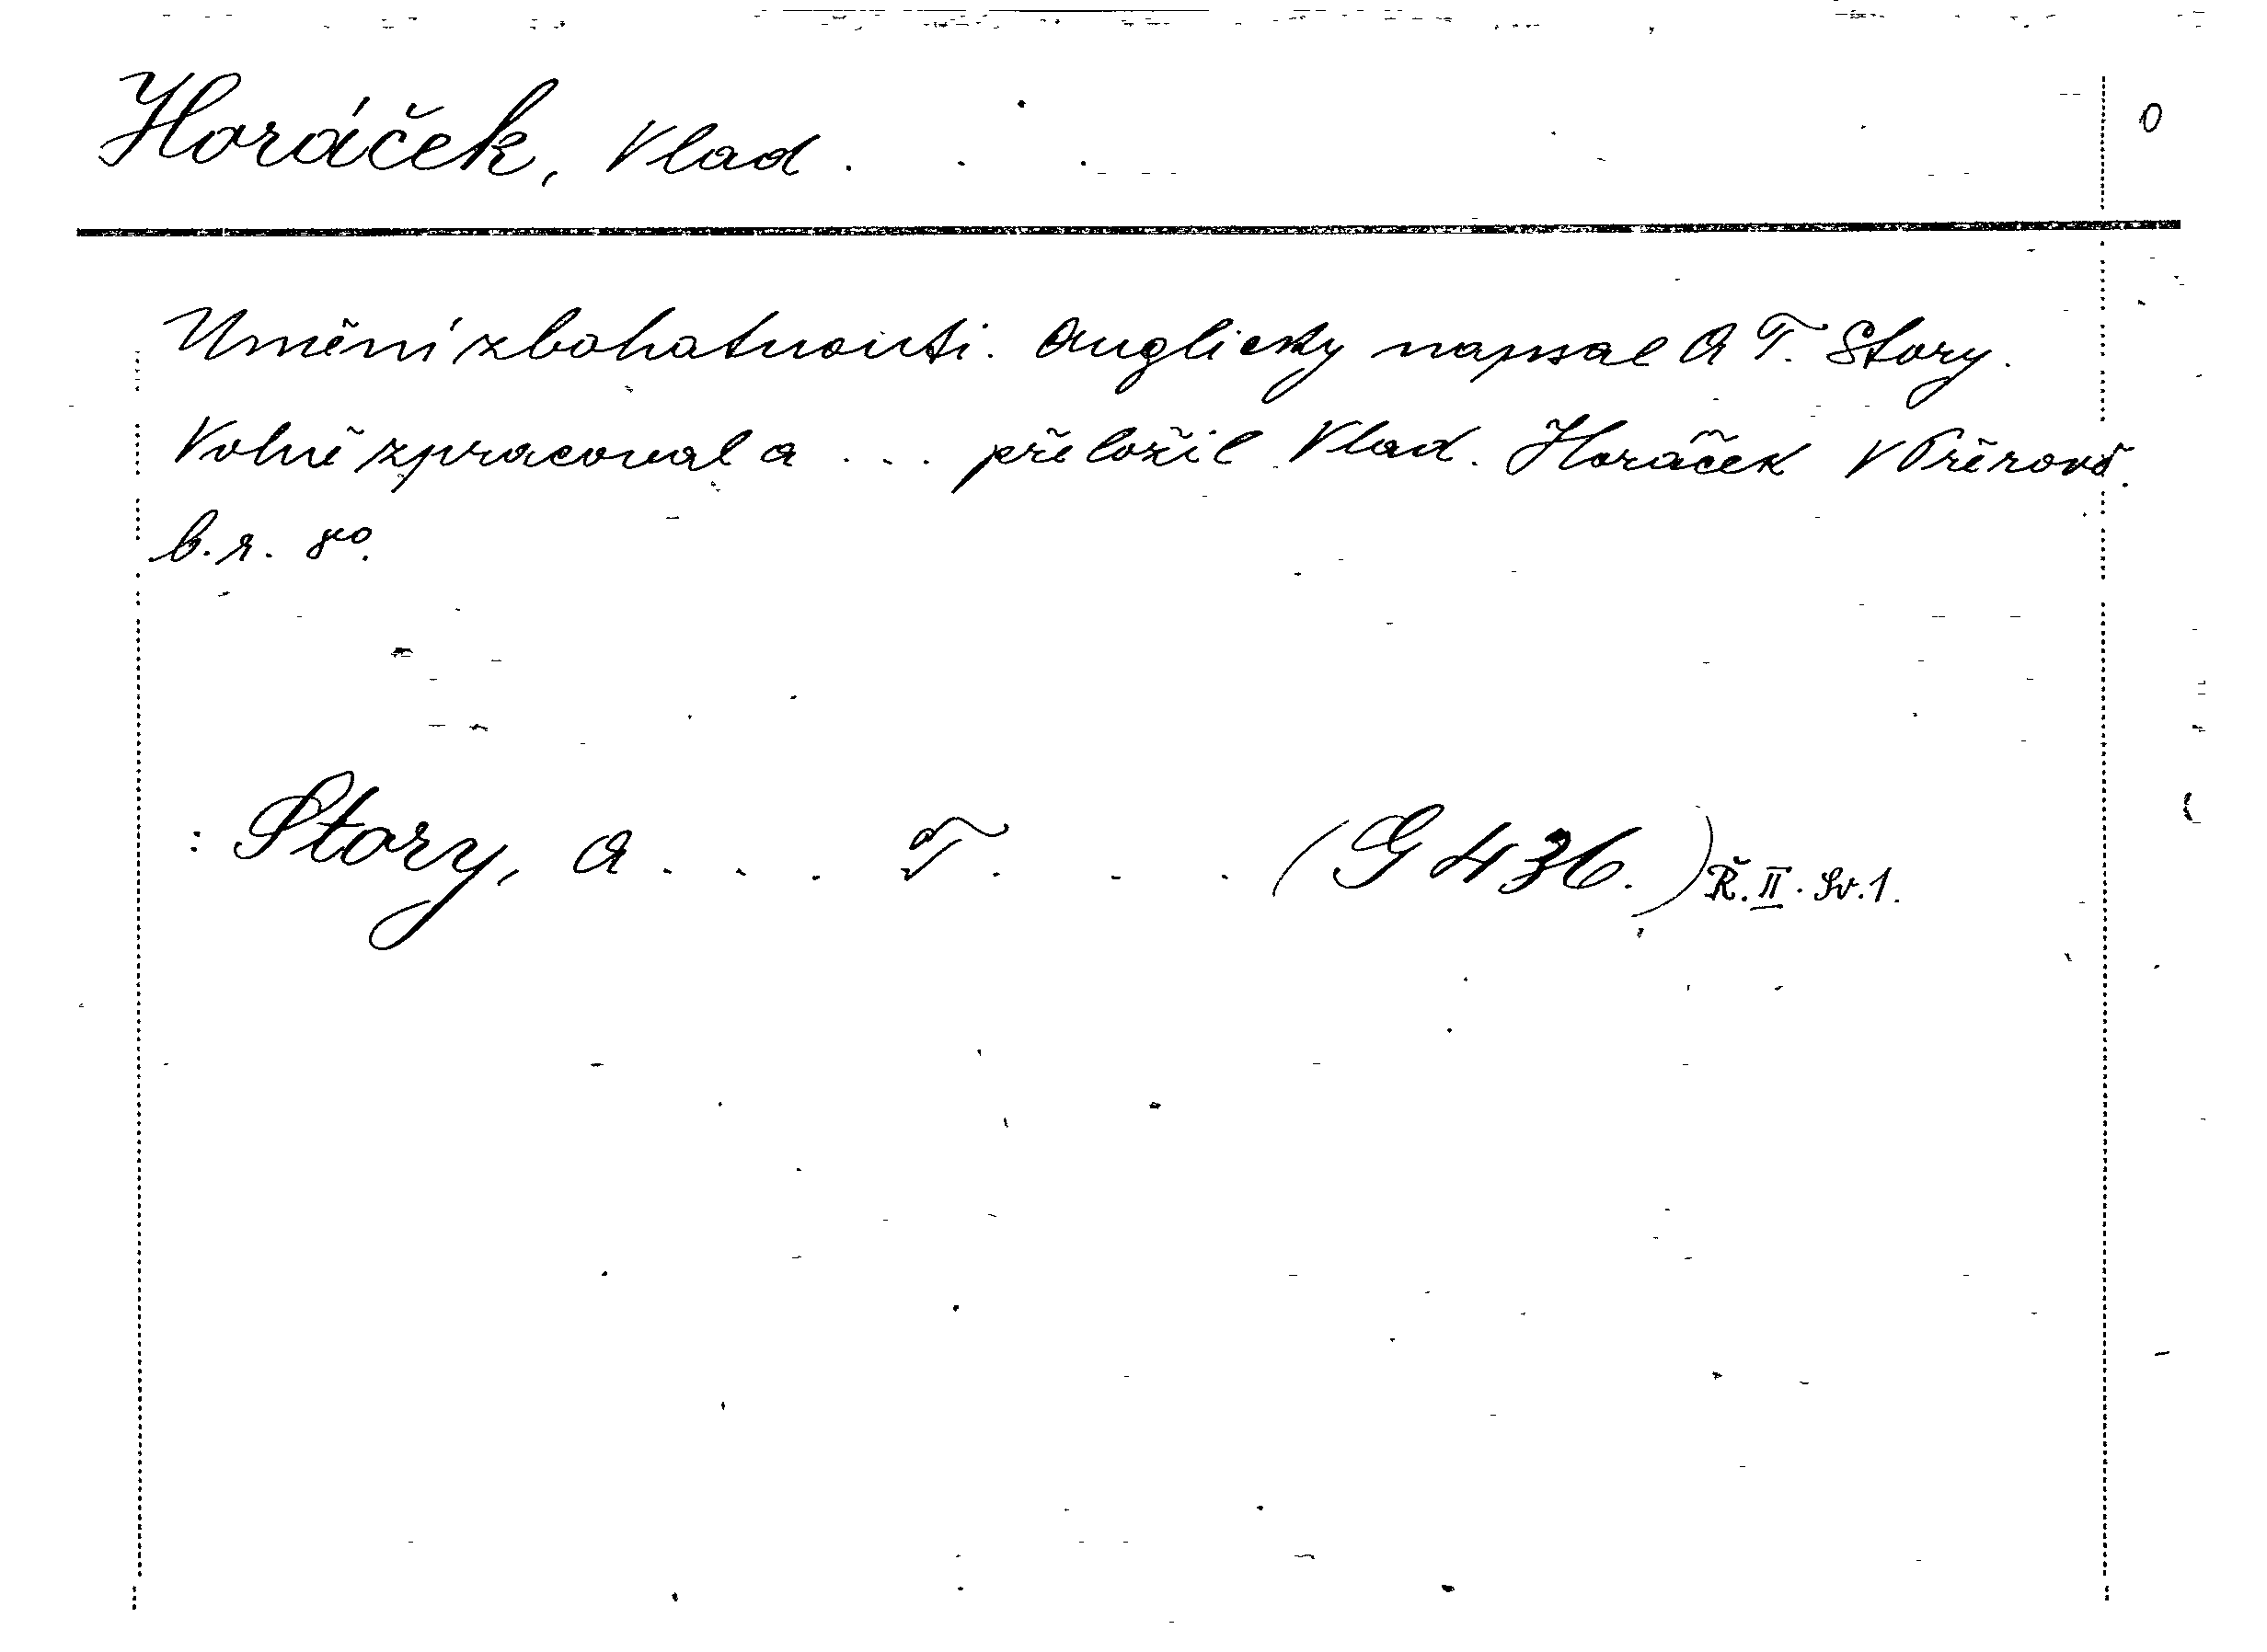 Horáček, Vlad. . . 0
Umění zbohatnouti. Anglicky napsal A T. Story.
Volně zpracoval a ... přeložil Vlad. Horáček V Přerově.
b.r. 8º.
: Story, A . . . T. . . (G 436.) Ř. II. Sv. 1.